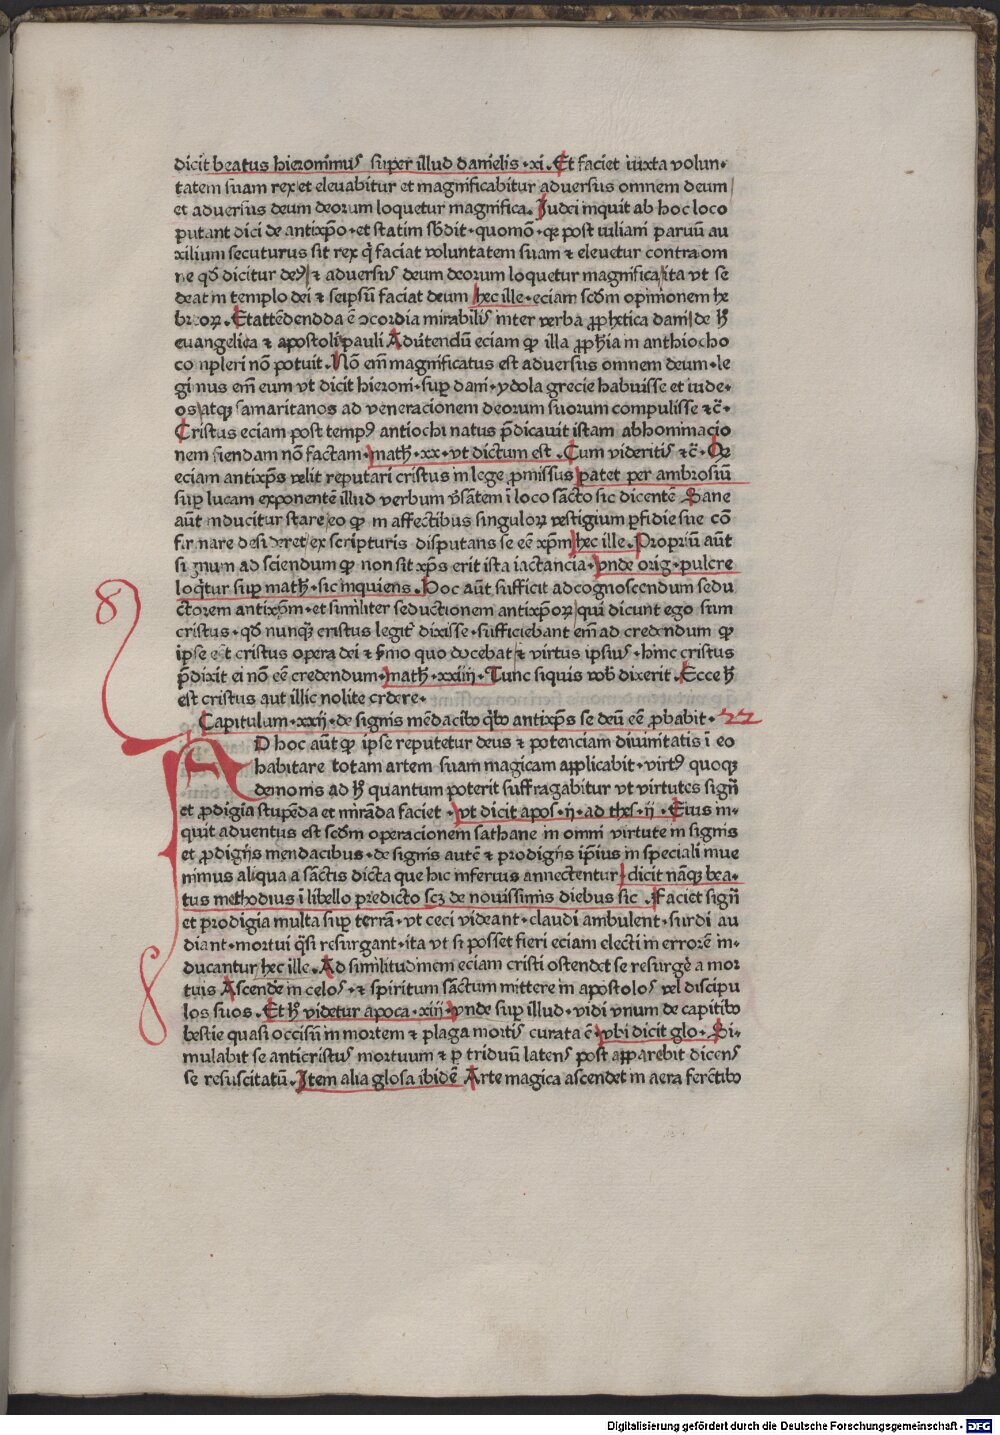 dicit beatus hieronimus super illud danielis · xi · Et faciet iuxta volun·
tatem suam rex et elevabitur et magnificabitur adversus omnem deum
et adversus deum deorum loquetur magnifica. Iudei inquit ab hoc loco
putant dici de antixp̄o · et statim sb̄dit · quomō · qꝛ post iuliani paruū au
xilium secuturus sit rex q̄ faciat voluntatem suam ⁊ elevetur contra om
ne qd̄ dicitur deꝰ ⁊ adversus deum deorum loquetur magnifica ita vt se
deat in templo dei ⁊ seipsū faciat deum hec ille · eciam scd̄m opinionem he
breoꝝ. Et attēdendda ē ↄcordia mirabilis inter verba ꝓphetica dani de h̄
euangelica ⁊ apostoli pauli Aduertendū eciam qꝫ illa ꝓph̄ia in anthiocho
co npleri nō potuit. Nō em̄ magnificatus est adversus omnem deum · le
gimus em̄ eum vt dicit hieroni · sup̄ dani · ydola grecie habuisse et iude·
os atqꝫ samaritanos ad veneracionem deorum suorum compulisse ⁊c̄·
Cristus eciam post tempꝰ antiochi natus p̄dicauit istam abhominacio
nem fiendam nō factam · math̄ · xx · vt dictum est. Cum videritis ⁊c̄ · Qꝛ
eciam antixp̄s velit reputari cristus in lege ꝓmissus patet per ambrosiū
sup̄ lucam exponentē illud verbum v̄santem ī loco sācto sic dicentē Sane
aūt inducitur stare eo qꝫ in affectibus singuloꝝ vestigium ꝑfidie sue cō
firmare desideret ex scripturis disputans se eē xp̄m hec ille. Propriū aūt
signum ad sciendum qꝫ non sit xp̄s erit ista iactancia · vnde orig · pulcre
loq̄tur sup̄ math̄ · sic inquiens. Hoc aūt sufficit ad cognoscendum sedu
ctorem antixp̄m · et similiter seductionem antixp̄oꝝ qui dicunt ego sum
cristus · qd̄ nunqꝫ cristus legit̄ dixisse · sufficiebant em̄ ad credendum qꝫ
ipse est cristus opera dei ⁊ s̄mo quo docebat ⁊ virtus ipsius · hinc cristus
p̄dixit ei nō eē credendum · math̄ · xxiiii · Tunc siquis vob̄ dixerit. Ecce h̄
est cristus aut illic nolite crdere.
Capitulum · xxij · de signis mēdacibꝰ q̄bꝰ antixp̄s se deū eē ꝓbabit · 22
AD hoc aūt qꝫ ipse reputetur deus ⁊ potenciam diuinitatis ī eo
habitare totam artem suam magicam applicabit · virtꝰ quoqꝫ
demonis ad h̄ quantum poterit suffragabitur vt virtutes sign̄
et ꝓdigia stupēda et mirāda faciet · vt dicit apos · ij · ad thes · ij · Eius in·
quit adventus est scd̄m operacionem sathane in omni virtute in signis
et ꝓdigijs mendacibus · de signis autē ⁊ prodigijs ip̄ius in speciali inue
nimus aliqua a sāctis dicta que hic inferius annectentur · dicit nāqꝫ bea·
tus methodius ī libello predicto scꝫ de nouissimis diebus sic. Faciet sign̄
et prodigia multa sup̄ terrā · vt ceci videant · claudi ambulent · surdi au
diant · mortui q̄si resurgant · ita vt si posset fieri eciam electi in errorē in·
ducantur hec ille. Ad similitudinem eciam cristi ostendet se resurgē a mor
tuis Ascendē in celos · ⁊ spiritum sāctum mittere in apostolos vel discipu
los suos. Et h̄ videtur apoca · xiij · vnde sup̄ illud · vidi vnum de capitibꝰ
bestie quasi occisū in mortem ⁊ plaga mortis curata ē · vbi dicit glo · Si·
mulabit se anticristus mortuum ⁊ ꝑ triduū latens post apparebit dicens
se resuscitatū. Item alia glosa ibidē Arte magica ascendet in aera ferētibꝰ
Digitalisierung gefördert durch die Deutsche Forschungsgemeinschaft - DFG